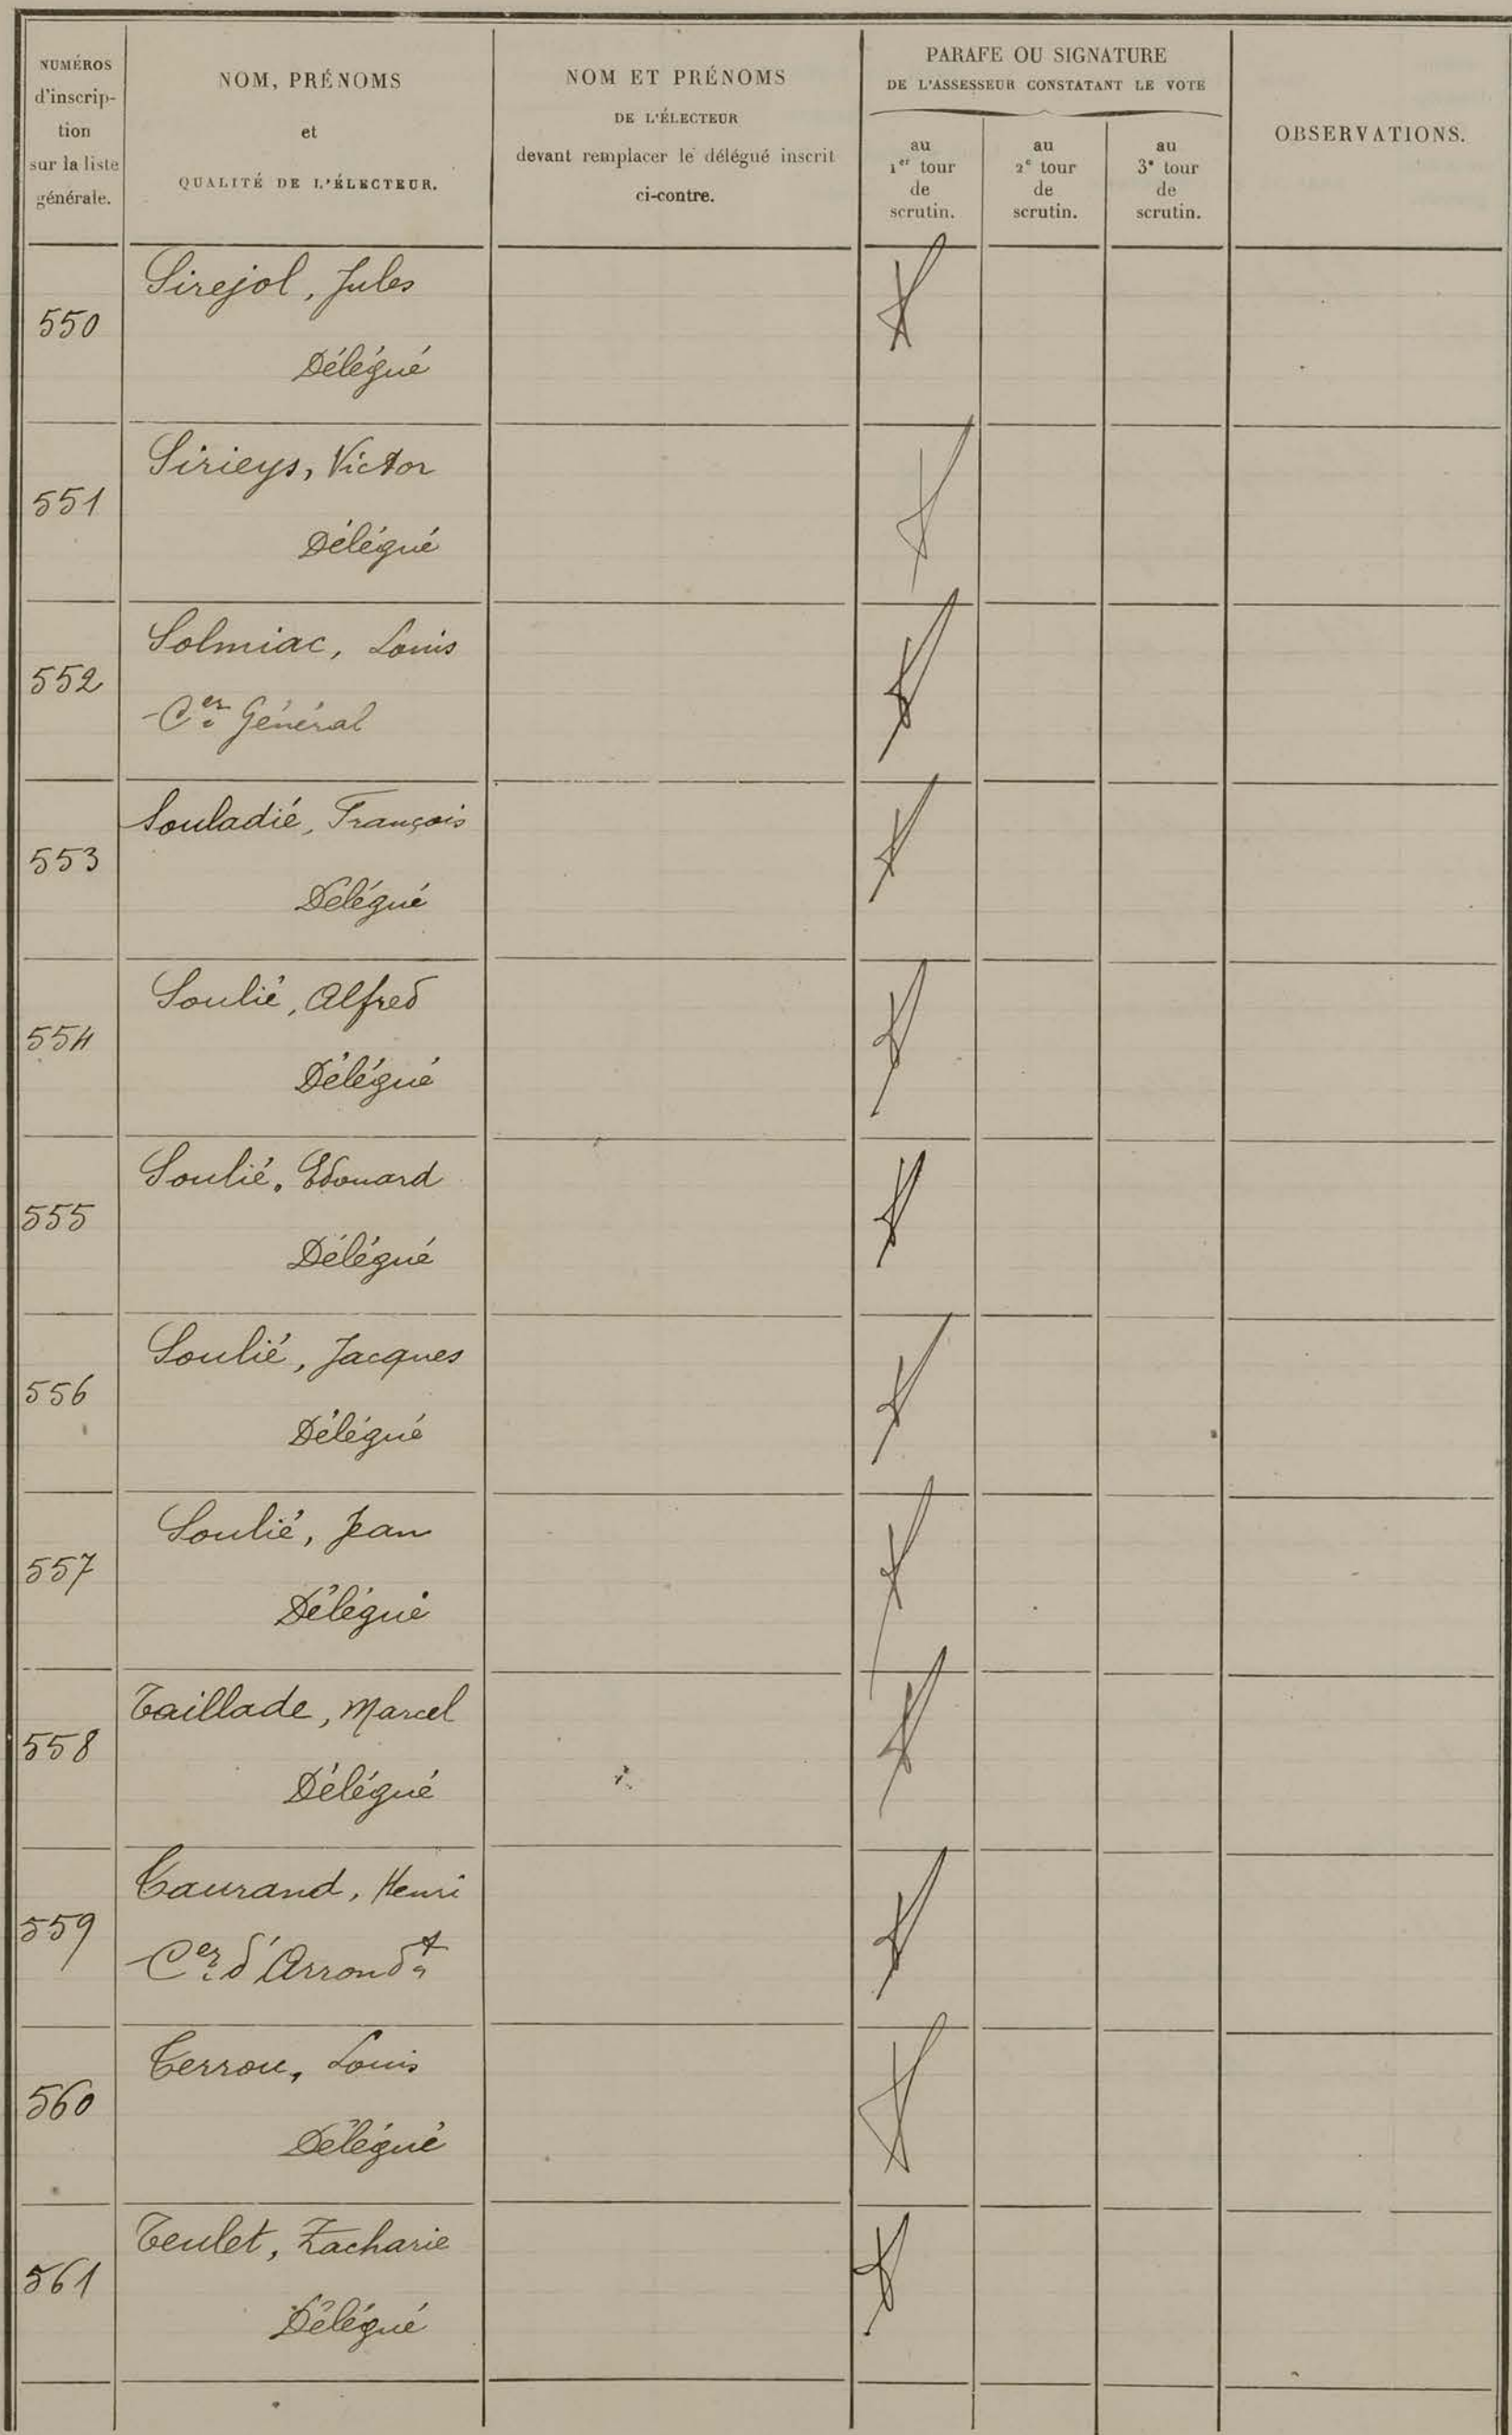 NUMÉROS
d'inscrip-
tion
sur la liste
générale.
NOM, PRÉNOMS
et
QUALITÉ DE L'ÉLECTEUR.
NOM ET PRÉNOMS
DE L'ÉLECTEUR
devant remplacer le délégué inscrit
ci-contre.
PARAFE OU SIGNATURE
DE L'ASSESSEUR CONSTATANT LE VOTE
au
1er tour
de
scrutin.
au
2e tour
de
scrutin.
au
3e tour
de
scrutin.
OBSERVATIONS.
Sirejol, Jules
550
Délégué
Sirieys, Victor
551
Délégué
Solmiac, Louis
552
Cer Général
Souladié, François
553
Délégué
Soulié, Alfred
554
Délégué
Soulié, Edouard
555
Délégué
Soulié, Jacques
556
Délégué
Soulié, Jean
557
Délégué
Taillade, Marcel
558
Délégué
Taurand, Henri
559
Cer d'Arrondt
Terrou, Louis
560
Délégué
Teulet, Zacharie
561
Délégué